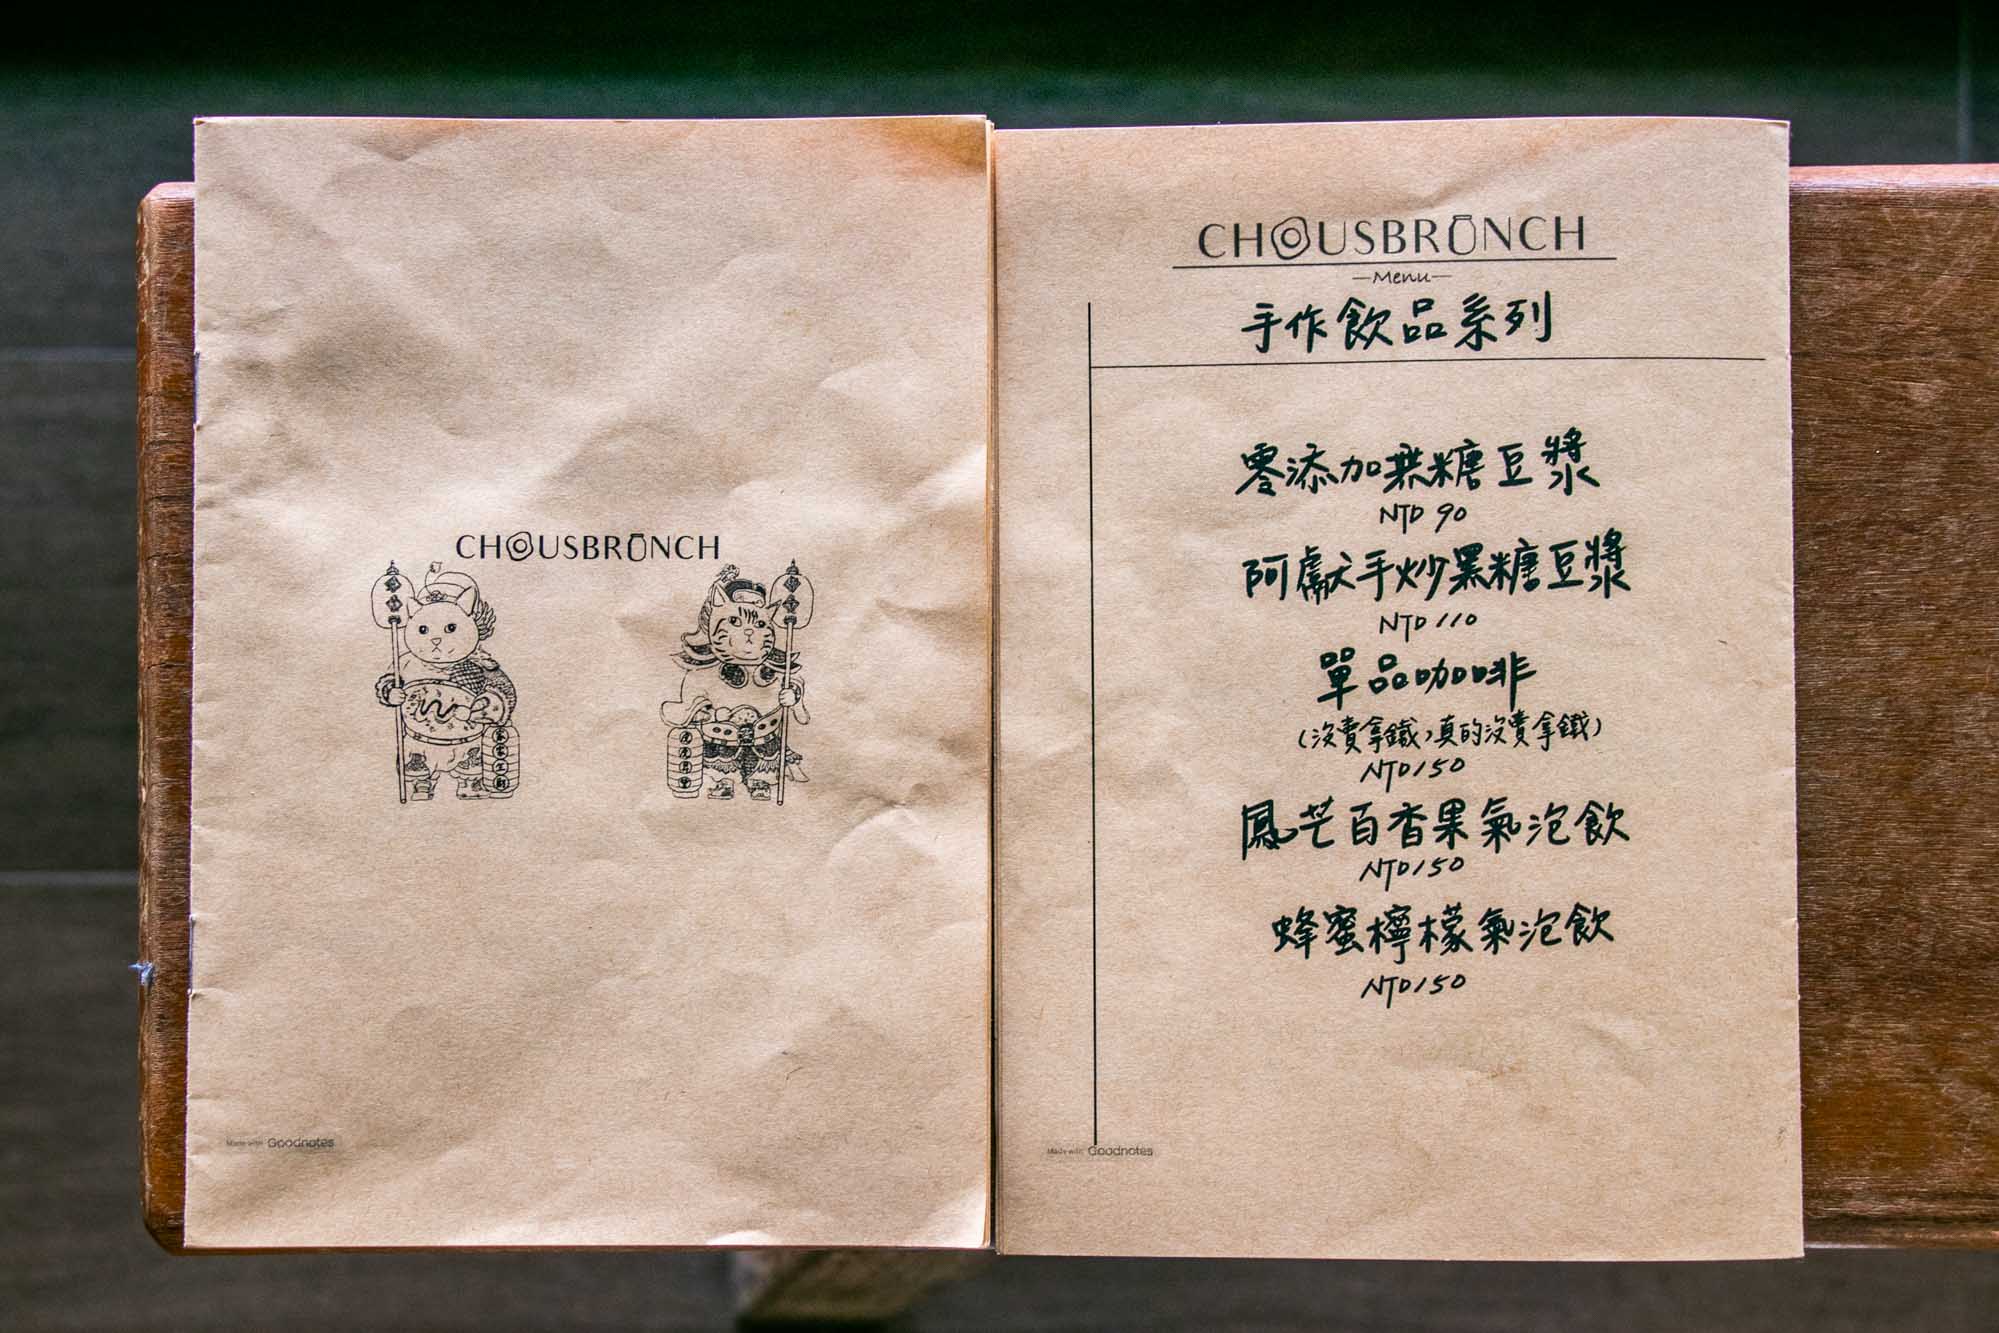 CHOUSBRUNCH
Made with Goodnotes
CHOUSBRUNCH
—Menu—
手作飲品系列
零添加無糖豆漿
NTD 90
阿獻手炒黑糖豆漿
NTD 110
單品咖啡
(沒賣拿鐵,真的沒賣拿鐵)
NTD 150
鳳芒百香果氣泡飲
NTD 150
蜂蜜檸檬氣泡飲
NTD 150
Made with Goodnotes